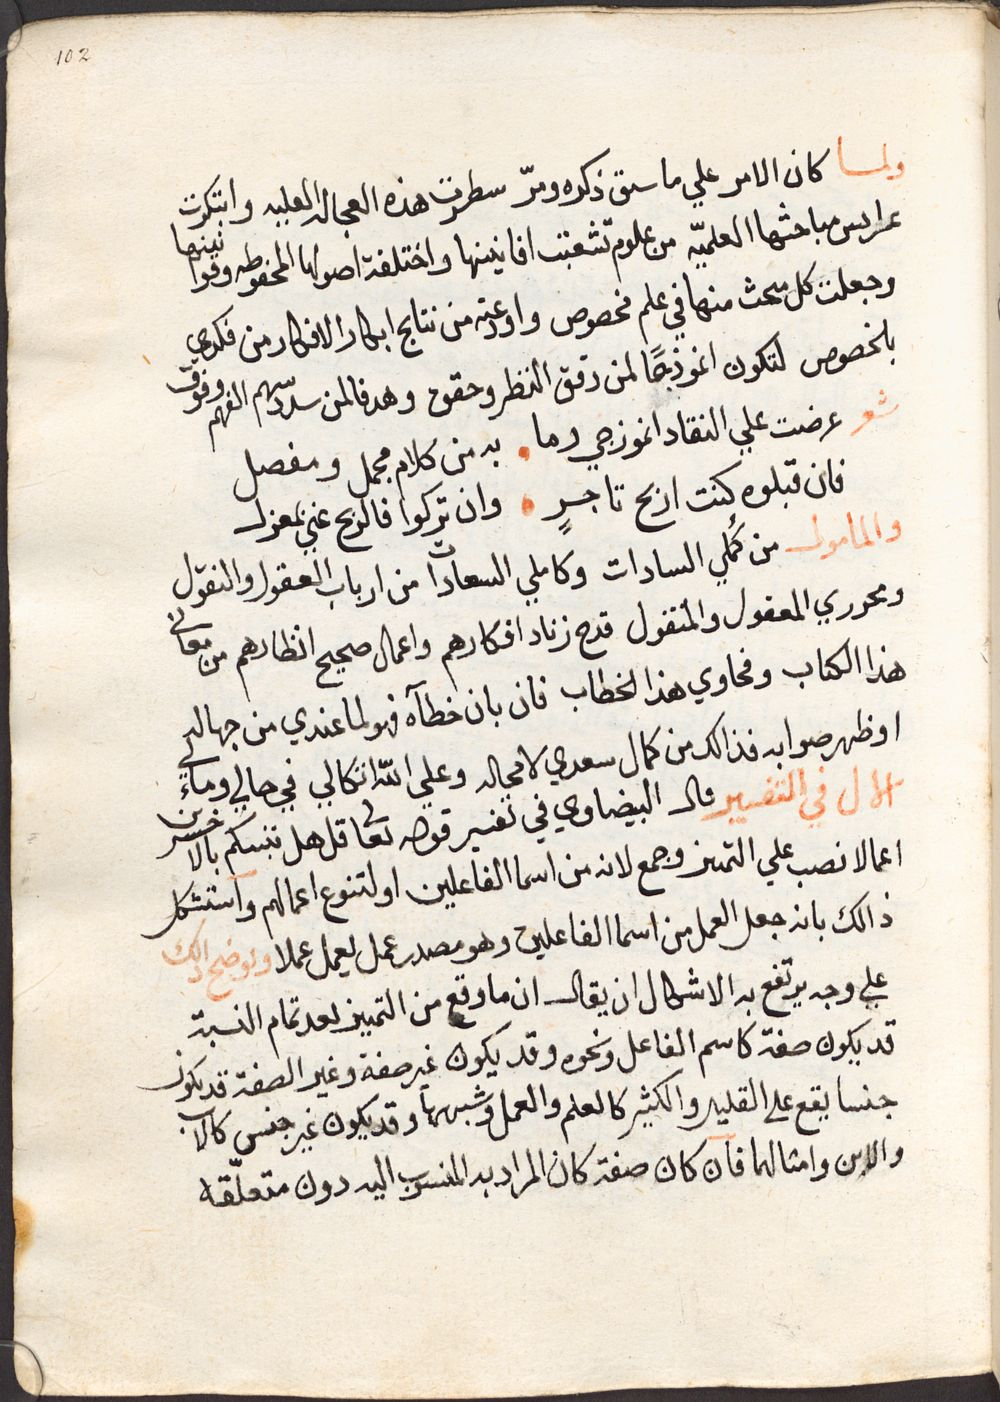 102
ولما كان الامر علي ما سبق ذكره ومرّ سطرت هذه العجاله العليه وابتكرت
عرايس مباحثها العلميّه من علوم تشعبت افانينها واختلفة اصولها المحفوظه وقوانينها
وجعلت كل مبحث منها في علم مخصوص واودعته من نتايج ابكار الافكار من فكري
بالخصوص لتكون انموذجًا لمن دقق النظر وحقق وهدفا لمن سدد سهم الفهم وفوّق
شعر عرضت علي النقاد انموزجي وما به من كلام مجمل ومفصل
فان قبلوه كنت اربح تاجرٍ وان تركوا فالربح عني بمعزل
والمامول من كُملي السادات وكاملي السعادات من ارباب العقول والنقول
ومحوري المعقول والمنقول قدح زناد افكارهم واعمال صحيح انظارهم من معاني
هذا الكتاب وفحاوي هذا الخطاب فان بان خطآه فهو لما عندي من جهاله
او ظهر صوابه فذالك من كمال سعدي لا محاله وعلي الله اتكالي في حالي ومآلي
الاول في التفسير قال البيضاوي في تفسير قوله تعالي قل هل ننبئكم بالاخسرين
اعمالا نصب علي التميز وجمع لانه من اسما الفاعلين او لتنوع اعمالهم واستشكل
ذالك بانه جعل العمل من اسما الفاعلين وهو مصدر عمل يعمل عملا وتوضيح ذالك
علي وجه يرتفع به الاشكال ان يقال ان ما وقع من التمييز بعد تمام النسبة
قد يكون صفة كاسم الفاعل ونحوه وقد يكون غير صفة وغير الصفة قد يكون
جنسا يقع علي القليل والكثير كالعلم والعمل وشبههما وقد يكون غير جنس كالاب
والابن وامثالهما فان كان صفة كان المراد به المنسوب اليه دون متعلّقه